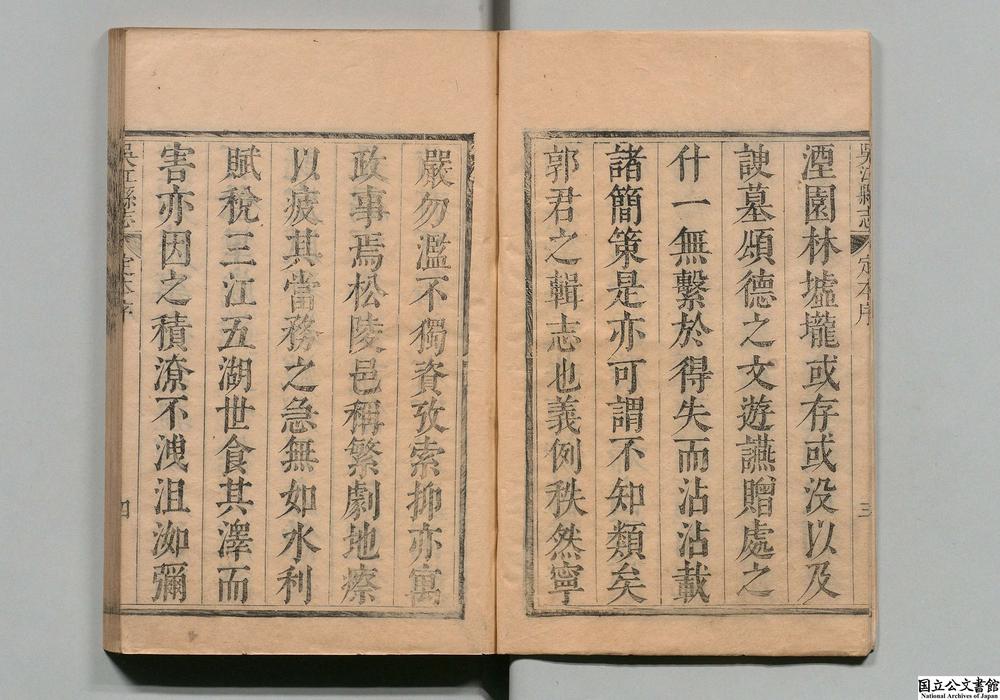 湮園林墟壠或存或没以及
諛墓頌德之文遊讌贈處之
什一無繫於得失而沾沾載
諸簡策是亦可謂不知類矣
郭君之輯志也義例秩然寧
嚴勿濫不獨資攷索抑亦寓
政事焉松陵邑稱繁劇地瘵
以疲其當務之急無如水利
賦稅三江五湖世食其澤而
害亦因之積潦不洩沮洳彌
吳江縣志 定本序 三
吳江縣志 定本序 四
国立公文書館
National Archives of Japan